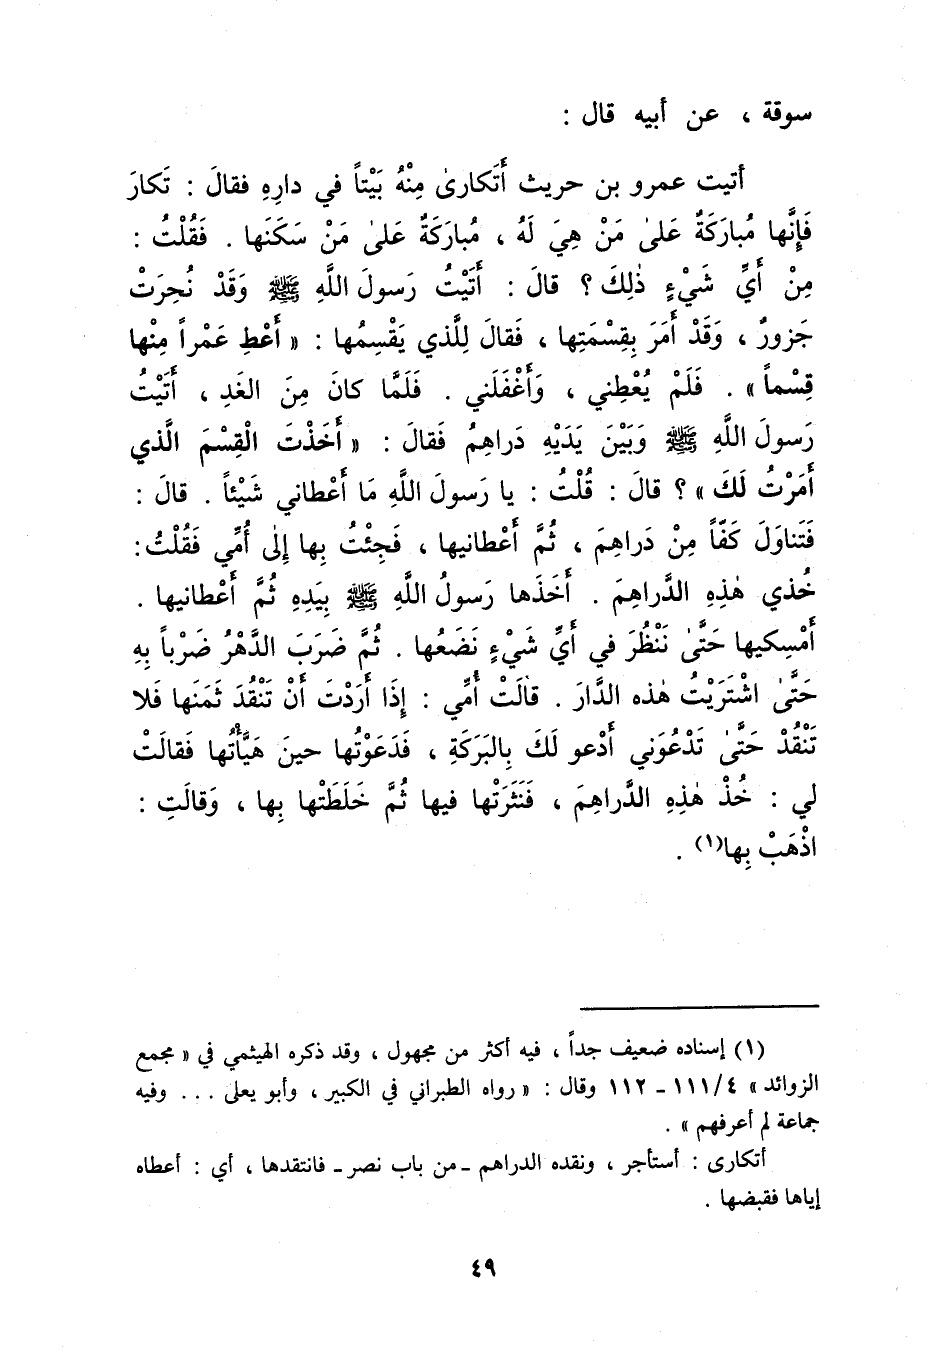 سوقة ، عن أبيه قال :
أتيت عمرو بن حريث أَتَكارىٰ مِنْهُ بَيْتاً في دارِهِ فقالَ : تَكارَ
فَإِنَّها مُبارَكَةٌ عَلىٰ مَنْ هِيَ لَهُ ، مُبارَكَةٌ عَلىٰ مَنْ سَكَنَها . فَقُلْتُ :
مِنْ أَيِّ شَيْءٍ ذٰلِكَ ؟ قالَ : أَتَيْتُ رَسولَ اللَّهِ ﷺ وَقَدْ نُحِرَتْ
جَزورٌ ، وَقَدْ أَمَرَ بِقِسْمَتِها ، فَقالَ لِلَّذي يَقْسِمُها : « أَعْطِ عَمْراً مِنْها
قِسْماً » . فَلَمْ يُعْطِني ، وَأَغْفَلَني . فَلَمَّا كانَ مِنَ الغَدِ ، أَتَيْتُ
رَسولَ اللَّهِ ﷺ وَبَيْنَ يَدَيْهِ دَراهِمُ فَقالَ : « أَخَذْتَ الْقِسْمَ الَّذي
أَمَرْتُ لَكَ » ؟ قالَ : قُلْتُ : يا رَسولَ اللَّهِ مَا أَعْطاني شَيْئاً . قالَ :
فَتَناوَلَ كَفّاً مِنْ دَراهِمَ ، ثُمَّ أَعْطانيها ، فَجِئْتُ بِها إِلىٰ أُمِّي فَقُلْتُ :
خُذي هٰذِهِ الدَّراهِمَ . أَخَذَها رَسولُ اللَّهِ ﷺ بِيَدِهِ ثُمَّ أَعْطانيها .
أَمْسِكيها حَتَّىٰ نَنْظُرَ في أَيِّ شَيْءٍ نَضَعُها . ثُمَّ ضَرَبَ الدَّهْرُ ضَرْباً بِهِ
حَتَّىٰ اشْتَرَيْتُ هٰذه الدَّارَ . قالَتْ أُمِّي : إِذَا أَرَدْتَ أَنْ تَنْقُدَ ثَمَنَها فَلا
تَنْقُدْ حَتَّىٰ تَدْعُوَني أَدْعو لَكَ بِالبَرَكَةِ ، فَدَعَوْتُها حينَ هَيَّأْتُها فَقالَتْ
لي : خُذْ هٰذِهِ الدَّراهِمَ ، فَنَثَرَتْها فيها ثُمَّ خَلَطَتْها بِها ، وَقالَتِ :
اذْهَبْ بِها(١) .
(١) إسناده ضعيف جداً ، فيه أكثر من مجهول ، وقد ذكره الهيثمي في « مجمع
الزوائد » ٤/١١١ ـ ١١٢ وقال : « رواه الطبراني في الكبير ، وأبو يعلى ... وفيه
جماعة لم أعرفهم » .
أتكارى : أستأجر ، ونقده الدراهم ـ من باب نصر ـ فانتقدها ، أي : أعطاه
إياها فقبضها .
٤٩